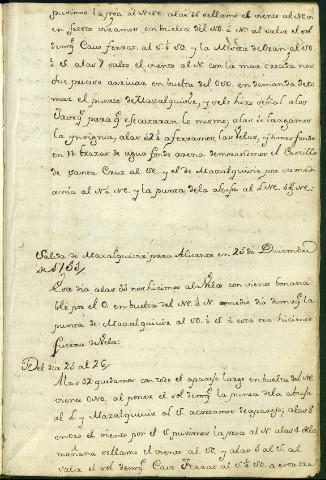 pusimos la proa al NNE. alas 11 se llamo el viento al NE. o
en fuerte viramos en buelta del NO. ¼ N. al valir el sol
demoro Cavo Ferrat al S. ¼ SO. y la Meseta de Oran al SO
¼ S. alas 7 salto el viento al N. con la mar crecida nos
fue preciso arrivar en buelta del OSO. en demanda de to
mar el puerto de Mazalquivir, y se le hizo señal a los
Javeq.s para q.e executaran lo mismo, alas
la ynsignia, alas 12½ aferramos las velas, y dimos fondo
en 11 brazas de agua fondo arena demorandonos el Castillo
de Santa Cruz al SE. y el de Mazalquivir por su medi
ania al N ¼ NE. y la punta dela abuja al LNE.
Salida de Mazalquivir para Alicante en 25 de Diciembre
de
Este dia alas 11 nos hicimos ala Vela con viento bonan
ble por el O. en buelta del NE. ¼ N. a medio dia demoro la
punta de Mazalquivir al SO. ¼ S. a esta ora hicimos
fuerza de Vela:
Del dia 25 al 26
Alas 12 quedamos con todo el aparejo largo en buelta del NE
viento ONO. al poner el sol demoro la punta dela abuja
al L y Mazalquivir al S. acortamos de aparejo, alas 8
entro el viento por el S. pusimos la proa al N. alas 4 dela
mañana se llamo el viento al SE. y alas 6 al S. al
valir el sol demoro Cavo Ferrat al S. ¼ SO. a esta ora